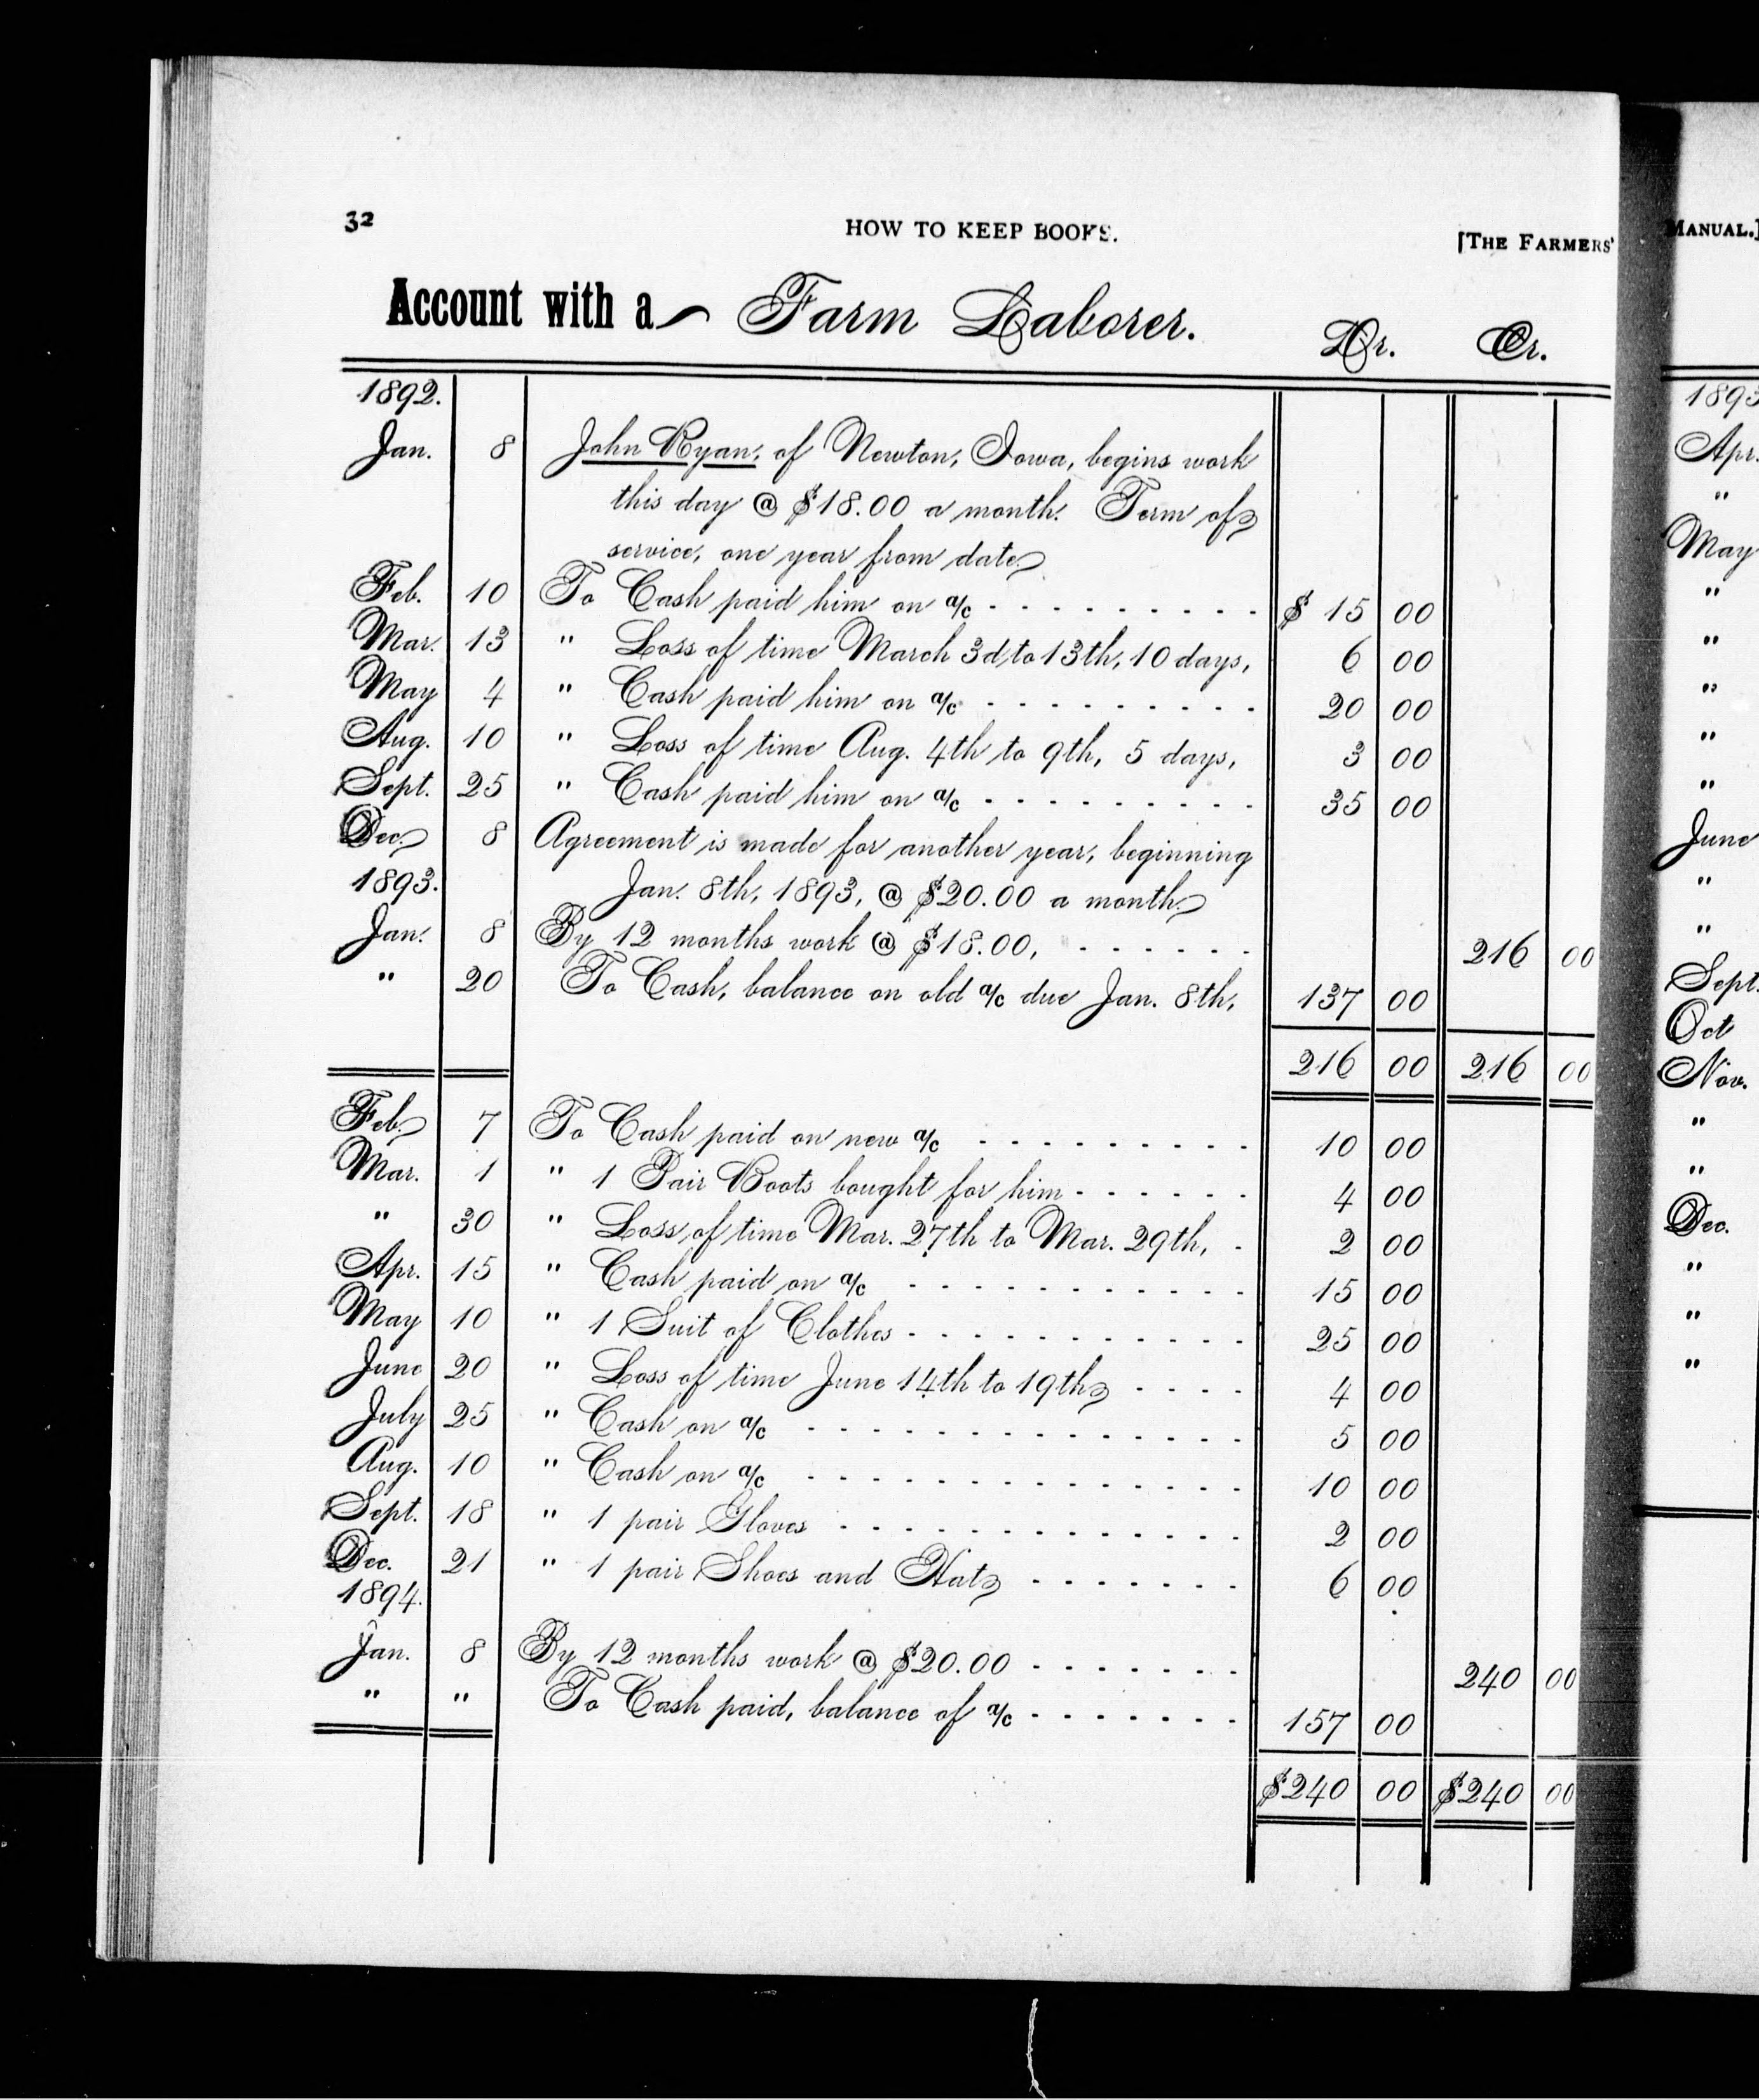 32
HOW TO KEEP BOOKS.
[THE FARMERS'
Account with a Farm Laborer.
Dr. Cr.
1892.
Jan. 8 John Ryan, of Newton, Iowa, begins work
this day @ $18.00 a month. Term of
service, one year from date
Feb. 10 To Cash paid him on a/c - - - - - - - - - $ 15 00
Mar. 13 " Loss of time March 3d to 13th, 10 days, 6 00
May 4 " Cash paid him on a/c - - - - - - - - - 20 00
Aug. 10 " Loss of time Aug. 4th to 9th, 5 days, 3 00
Sept. 25 " Cash paid him on a/c - - - - - - - - - 35 00
Dec. 8 Agreement is made for another year, beginning
1893. Jan. 8th, 1893, @ $20.00 a month.
Jan. 8 By 12 months work @ $18.00, - - - - - - 216 00
" 20 To Cash, balance on old a/c due Jan. 8th, 137 00
216 00 216 00
Feb. 7 To Cash paid on new a/c - - - - - - - - - 10 00
Mar. 1 " 1 Pair Boots bought for him - - - - - - 4 00
" 30 " Loss of time Mar. 27th to Mar. 29th, - 2 00
Apr. 15 " Cash paid on a/c - - - - - - - - - - - 15 00
May 10 " 1 Suit of Clothes - - - - - - - - - - - 25 00
June 20 " Loss of time June 14th to 19th - - - - 4 00
July 25 " Cash on a/c - - - - - - - - - - - - - - 5 00
Aug. 10 " Cash on a/c - - - - - - - - - - - - - - 10 00
Sept. 18 " 1 pair Gloves - - - - - - - - - - - - - 2 00
Dec. 21 " 1 pair Shoes and Hat - - - - - - - 6 00
1894.
Jan. 8 By 12 months work @ $20.00 - - - - - - - 240 00
" " To Cash paid, balance of a/c - - - - - - - 157 00
$240 00 $240 00
MANUAL.]
Apr.
"
May
"
"
"
"
"
June
"
"
Sept.
Oct
Nov.
"
"
Dec.
"
"
"